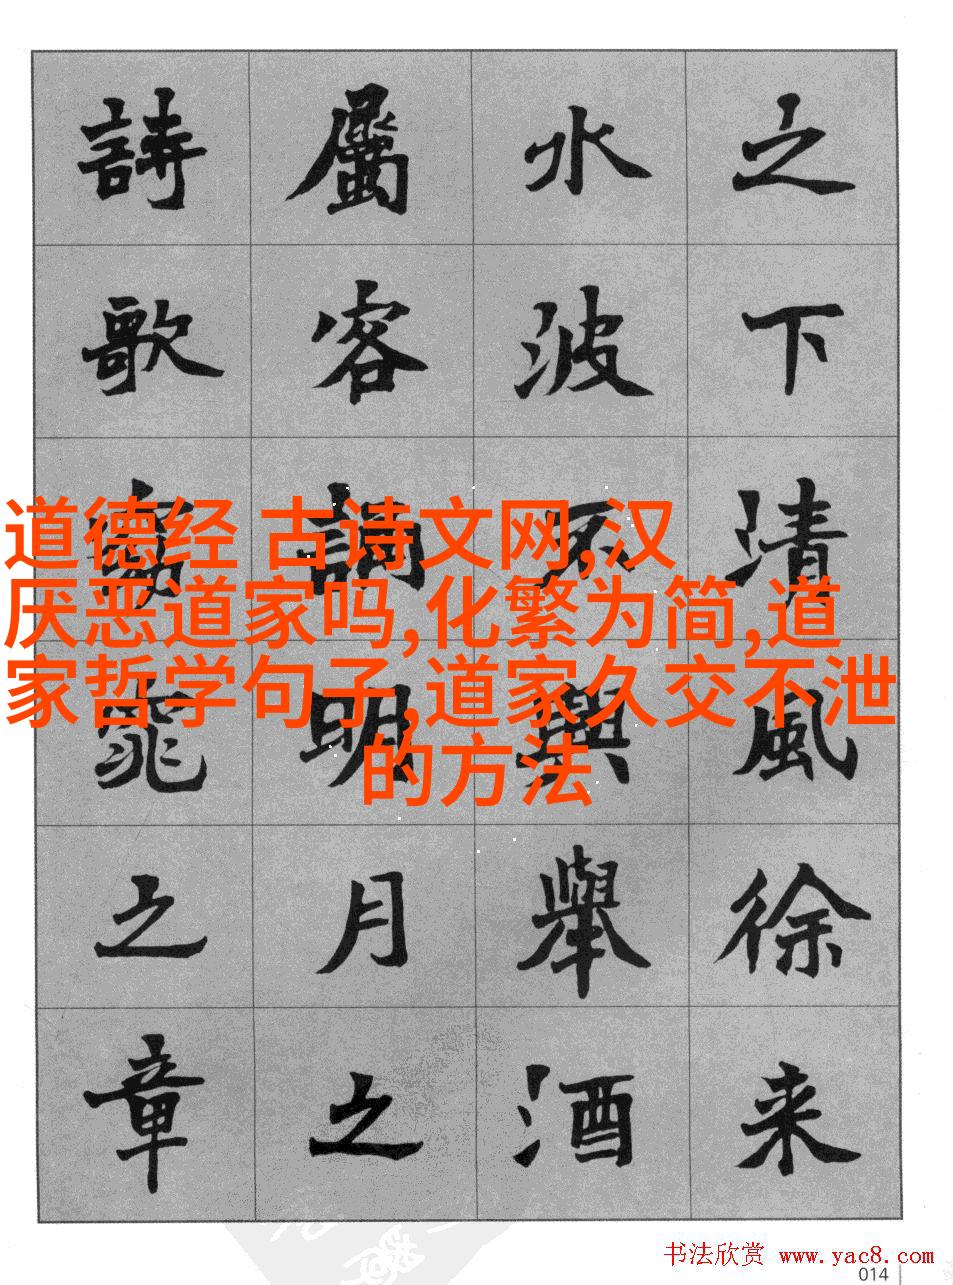 之下清風徐来
水波不興舉酒
屬客誦明月之
詩歌窈窕之章
道德经 古诗文网,汉
厌恶道家吗,化繁为简,道
家哲学句子,道家久交不泄
的方法
书法欣赏 www.yac8.com
014